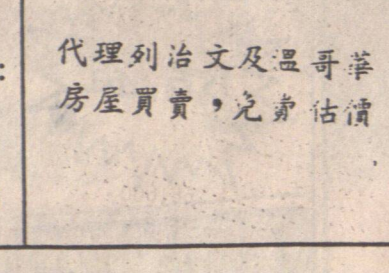 代理列治文及溫哥華
房屋買賣，免費估價